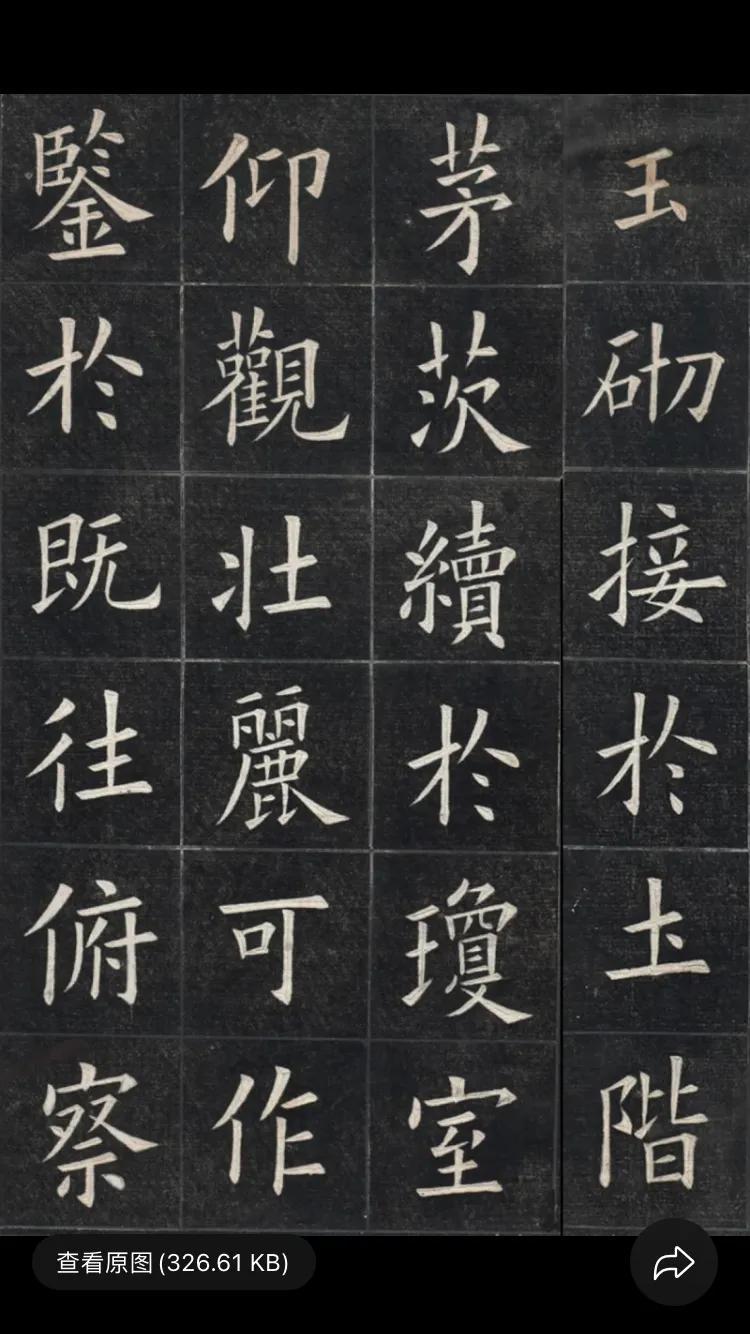 玉砌接於土階
茅茨續於瓊室
仰觀壯麗可作
鍳於既往俯察
查看原图(326.61 KB)